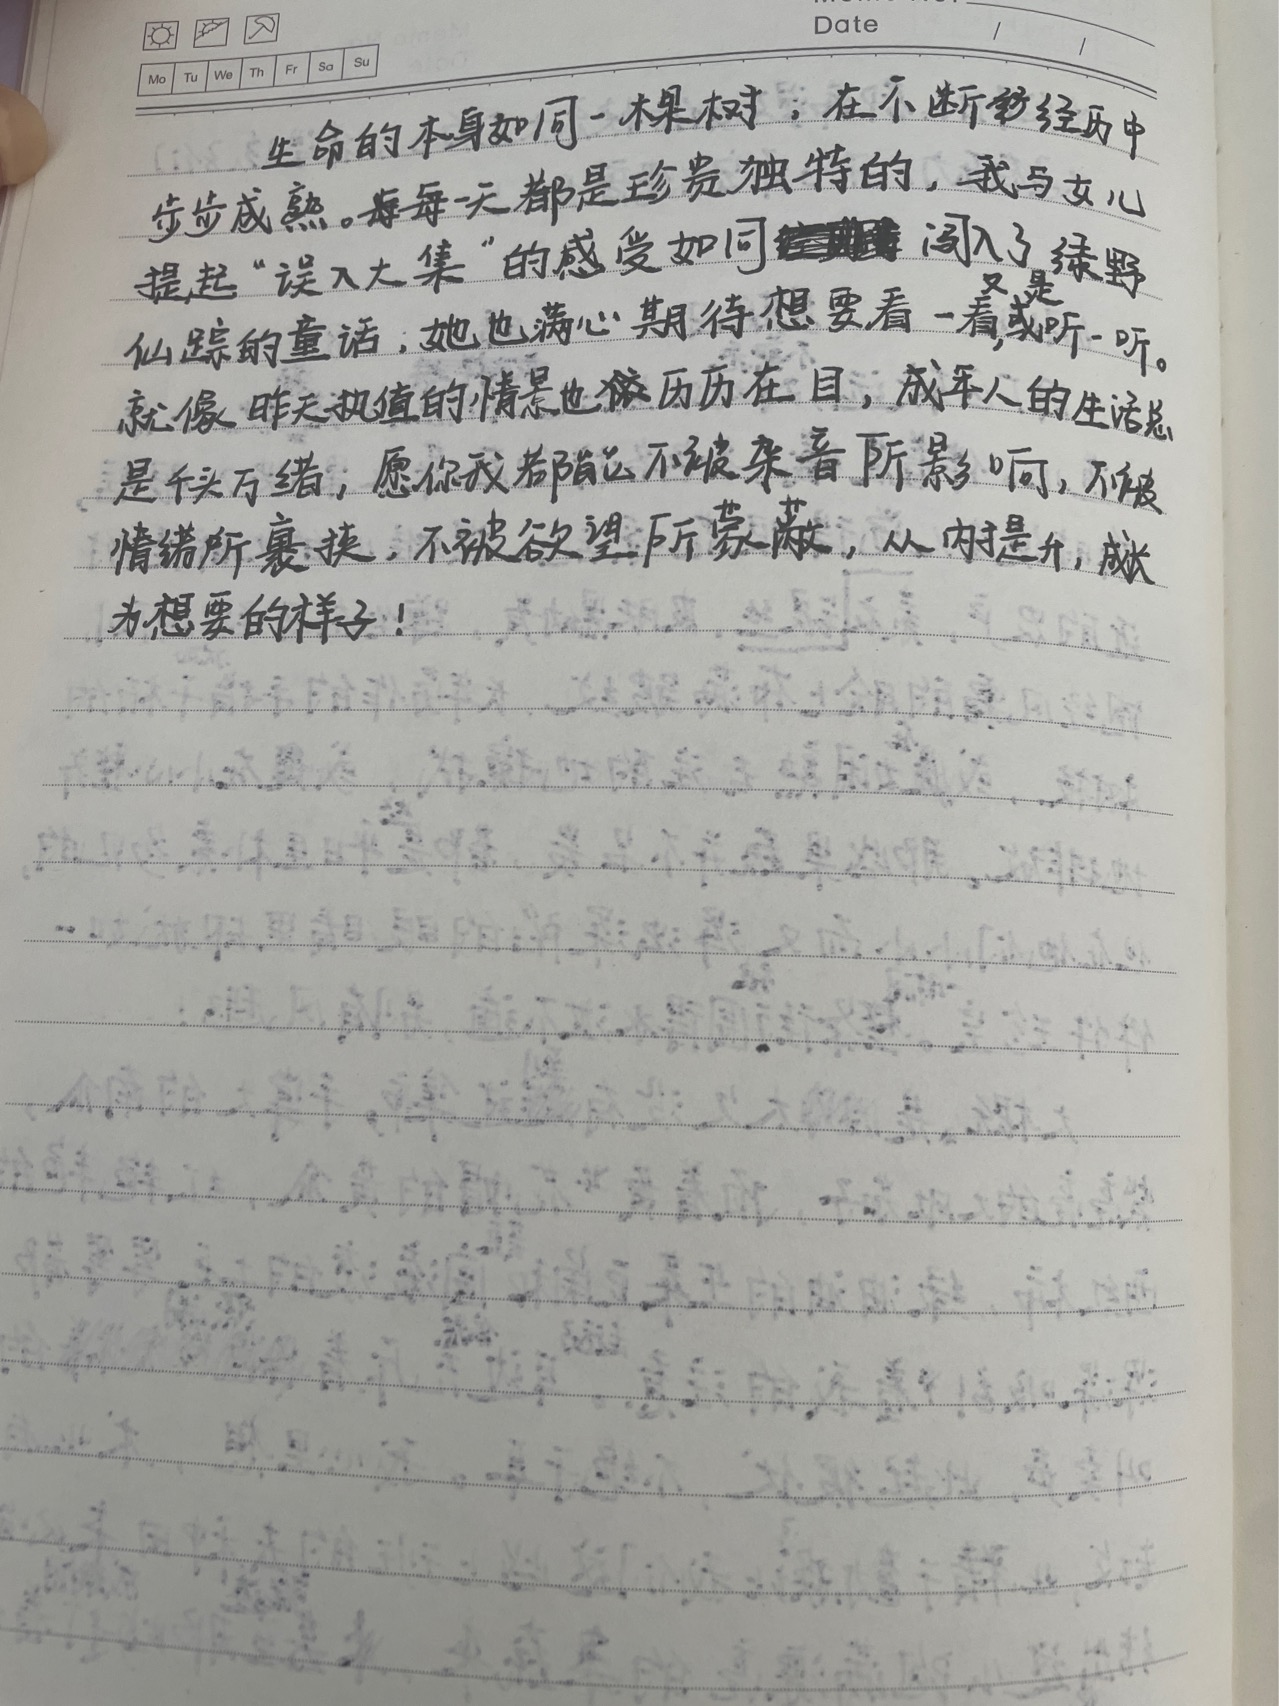 Date / /
Mo Tu We Th Fr Sa Su
生命的本身如同一棵树；在不断经历中
步步成熟。每每一天都是珍贵独特的，我与女儿
提起“误入大集”的感受如同闯入了绿野
仙踪的童话，她也满心期待想要看一看，又是或听一听。
就像昨天执值的情景也依历历在目，成年人的生活总
是千头万绪；愿你我都能不被杂音所影响，不被
情绪所裹挟，不被欲望所蒙蔽，从内提升，成长
为想要的样子！